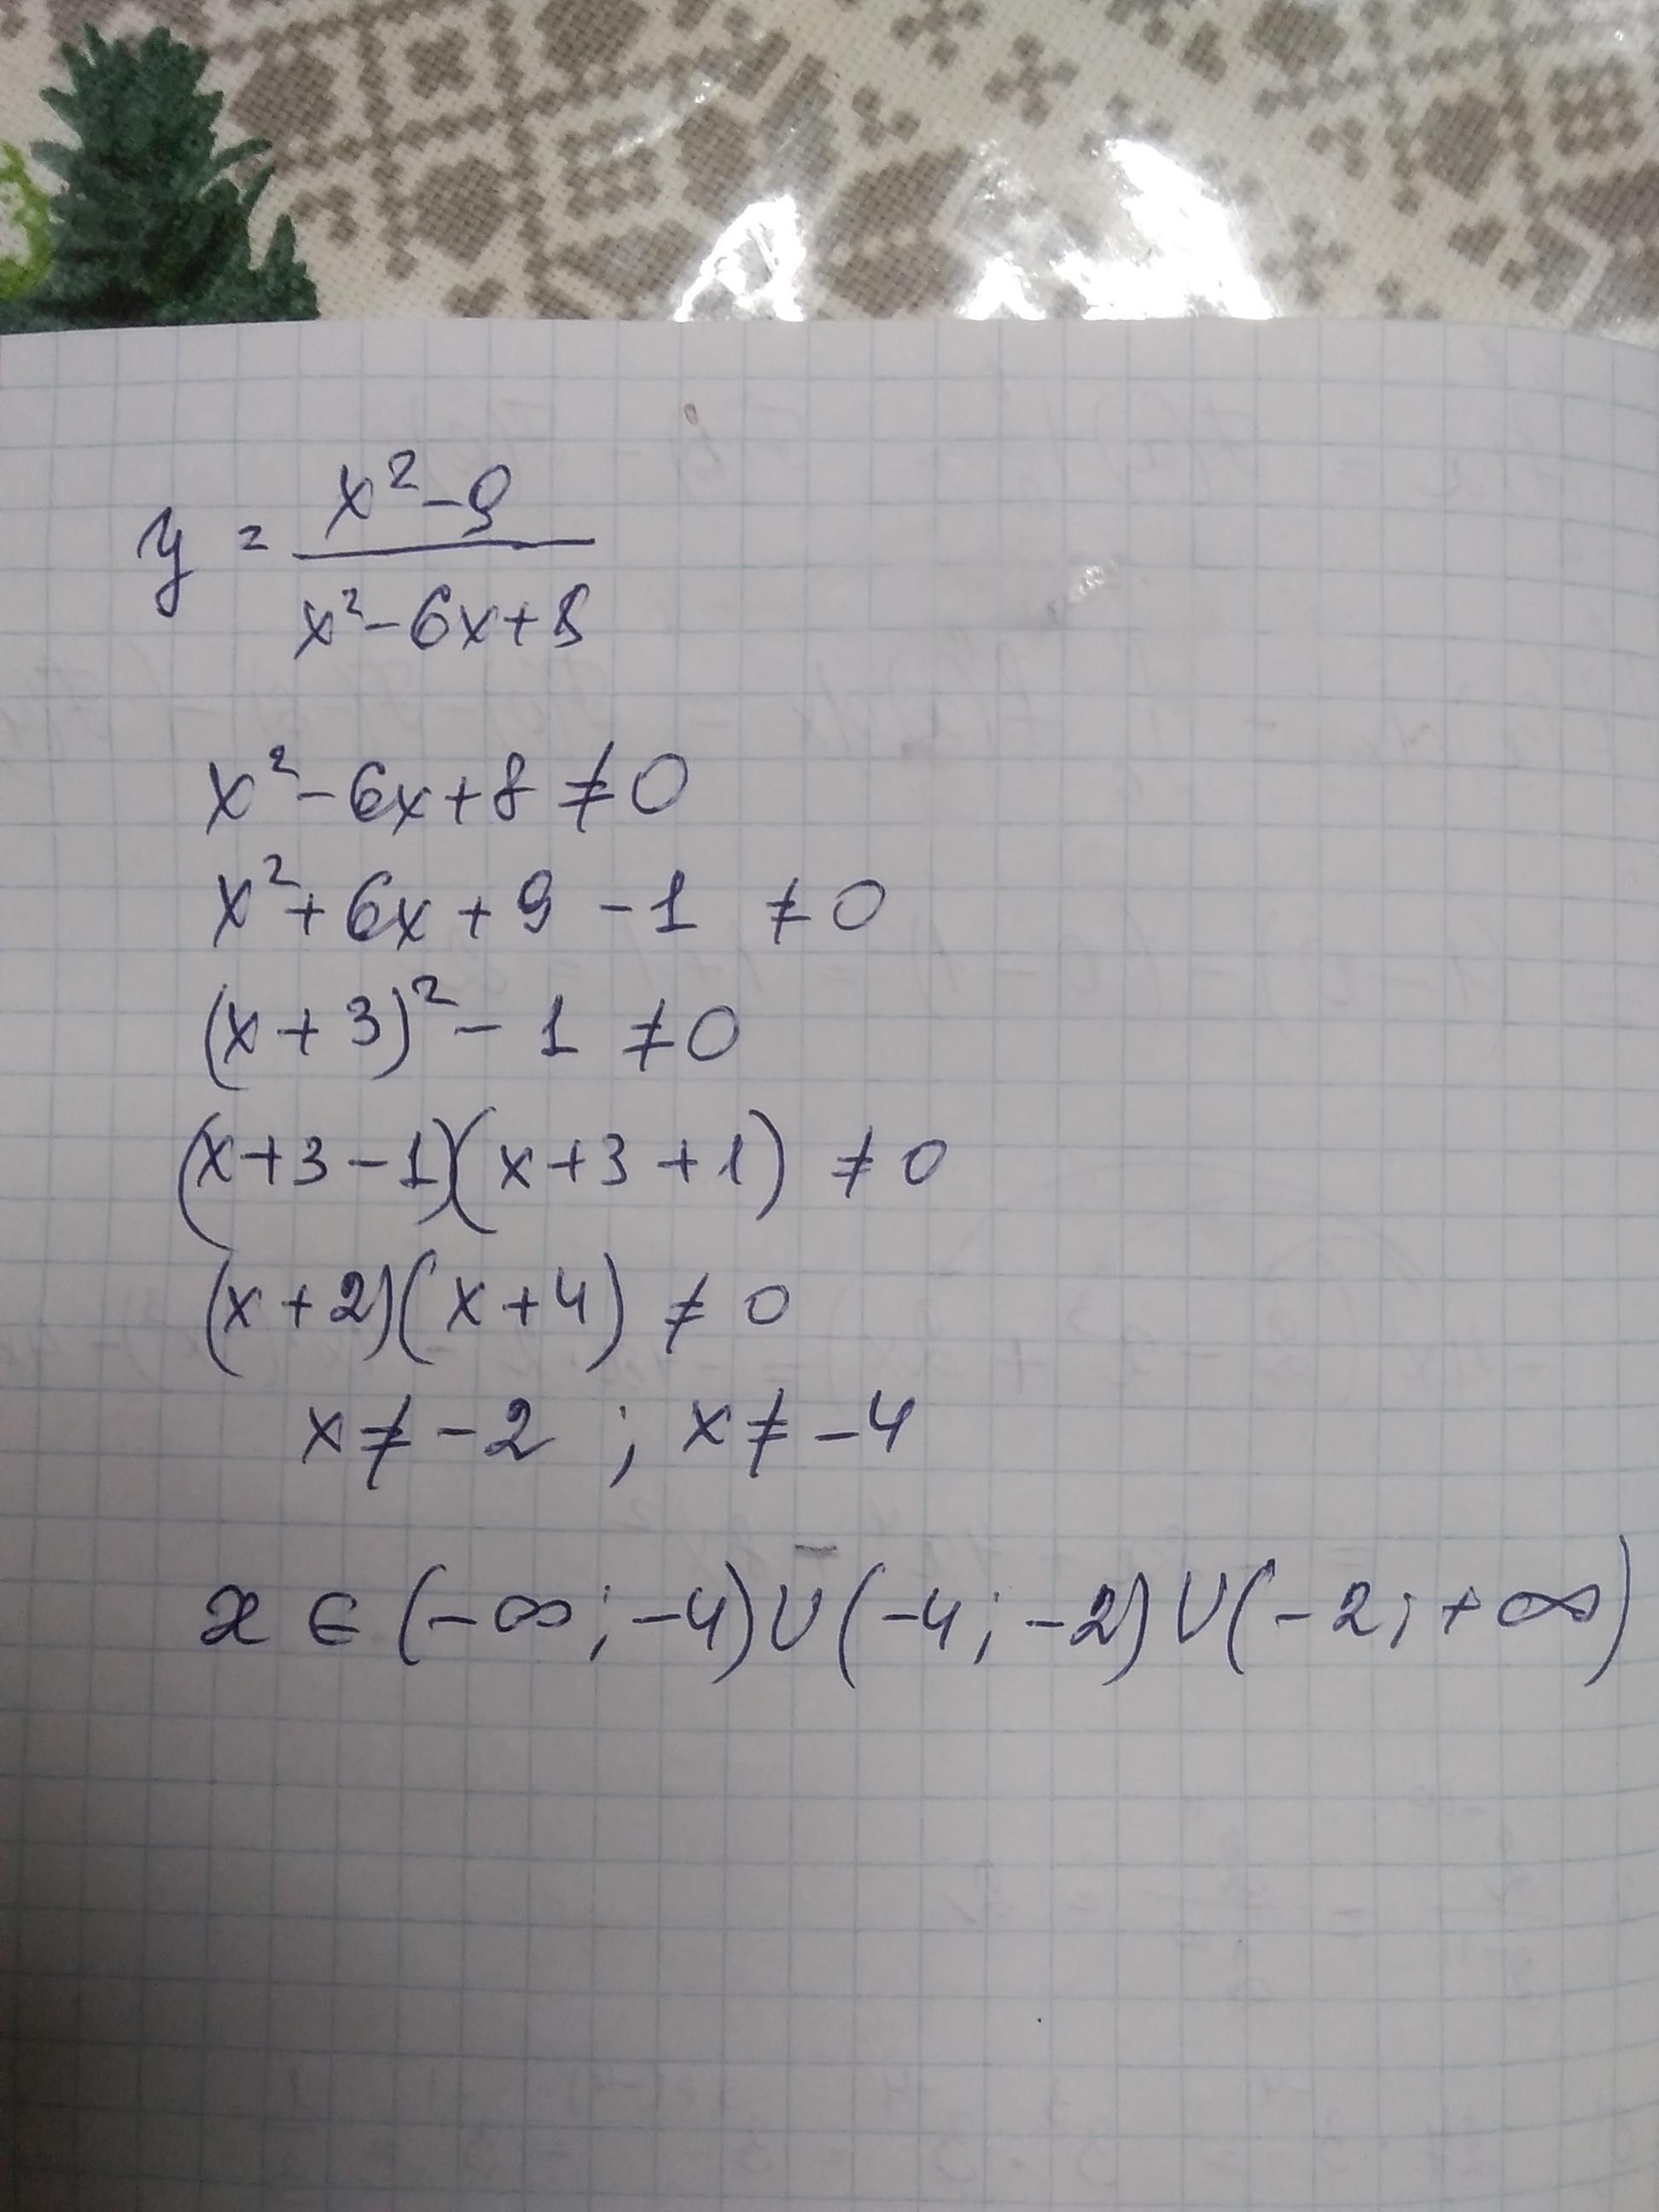 y = x²-9 / x²-6x+8
x²-6x+8 ≠ 0
x²+6x+9-1 ≠ 0
(x+3)²-1 ≠ 0
(x+3-1)(x+3+1) ≠ 0
(x+2)(x+4) ≠ 0
x ≠ -2 ; x ≠ -4
x ∈ (-∞; -4) ∪ (-4; -2) ∪ (-2; +∞)